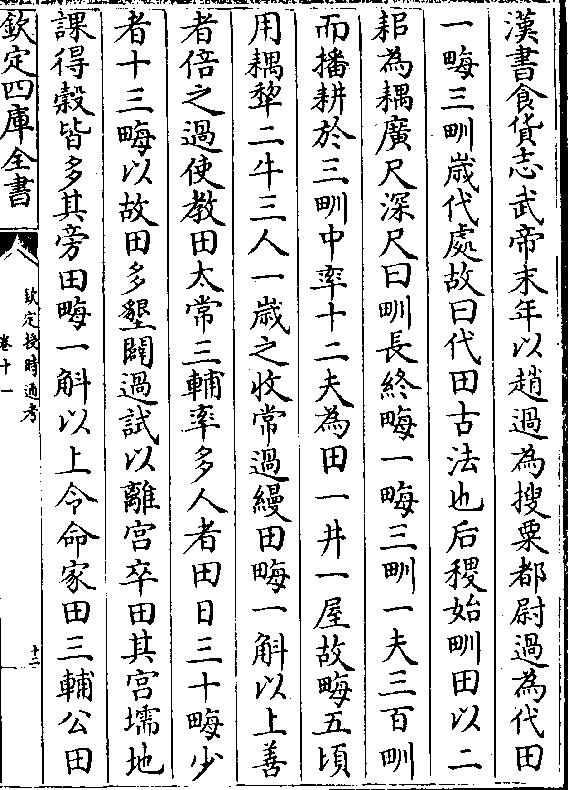 漢書食貨志武帝末年以趙過為搜粟都尉過為代田
一畮三甽歲代處故曰代田古法也后稷始甽田以二
耜為耦廣尺深尺曰甽長終畮一畮三甽一夫三百甽
而播耕於三甽中率十二夫為田一井一屋故畮五頃
用耦犂二牛三人一歲之收常過縵田畮一斛以上善
者倍之過使教田太常三輔率多人者田日三十畮少
者十三畮以故田多墾闢過試以離宫卒田其宫壖地
課得穀皆多其旁田畮一斛以上令命家田三輔公田
欽定四庫全書
欽定授時通考
卷十一
十二